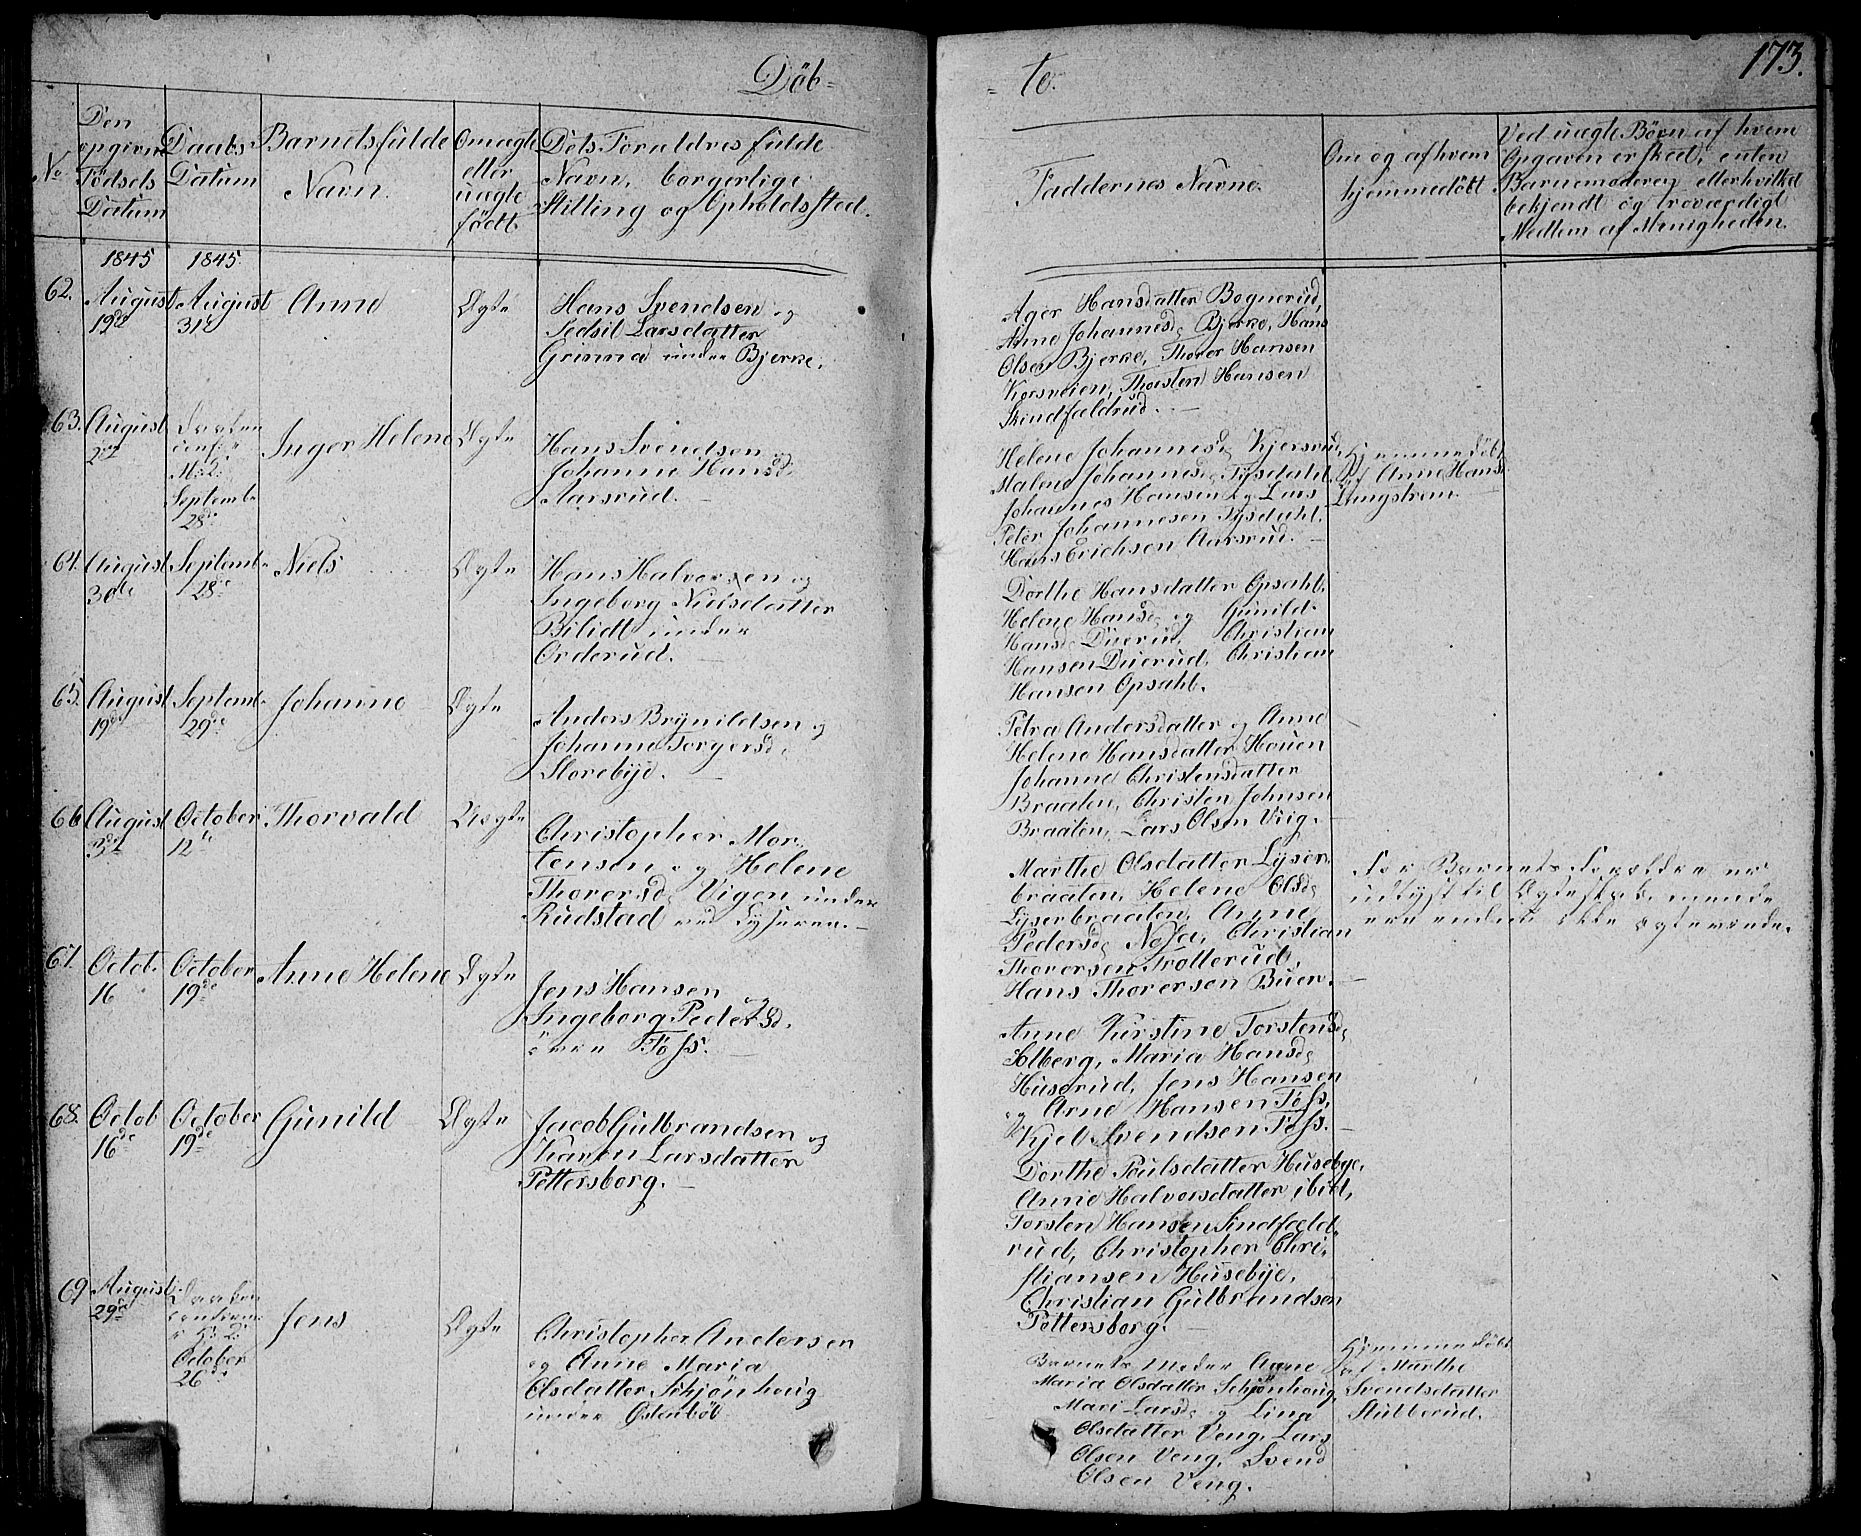 Döb-
- te.
173.
No
Den
opgivne
Födsels
Datum
Daabs
Datum
Barnets fulde
Navn.
Om ægte
eller
uægte
födt.
Dets Forældres fulde
Navn, borgerlige
Stilling og Opholdssted.
Faddernes Navne.
Om og af hvem
hjemmedöbt
Ved uægte Börn af hvem
Opgaven er skeet, enten
Barnemoderen eller hvilket
bekjendt og troværdigt
Medlem af Menigheden.
1845
1845.
62.
August
19de
August
31te
Anne
Ægte
Hans Svendsen og
Sedsil Larsdatter
Grinna under Bjerke.
Hansdatter Bognerud,
Anne Johannesd. Bjerke, Hans
Olsen Bjerke, Thorer Hansen
Korsveien, Thorsten Hansen
Skindfældrud.
63.
August
Daaben
conf: i
Septemb.
28de
Inger Helene
Ægte
Hans Svendsen
Johanne Hansd.
Aarsrud.
Helene Johannesd. Kjersrud,
Malene Johannesd. Tysdahl,
Johannes Hansen og Lars
Peter Johannesen Tysdahl.
Hans Erichsen Aarsrud.
Hjemmedöbt
af Anne Hansd.
Lungstrem.
64.
August
30te
Septemb.
28de
Niels
Ægte
Hans Halvorsen og
Ingeborg Nielsdatter
Bilidt under
Orderud.
Dorthe Hansdatter Opsahl,
Helene Hansd. og Gunild
Hansd. Duerud, Christian
Hansen Duerud, Christian
Hansen Opsahl.
65.
August
19de
Septemb.
29de
Johanne
Ægte
Anders Brynildsen og
Johanne Torgersd.
Storebye.
Petra Andersdatter og Anne
Helene Hansdatter Houen
Johanne Christensdatter
Braaten, Christen Johnsen
Braaten, Lars Olsen Viig.
66
August
3de
October
12te
Thorvald
Uægte
Christopher Mor-
tensen og Helene
Thorersd. Vigen under
Rudstad ved Lyseren.
Marthe Olsdatter Lyser-
braaten, Helene Olsd.
Lyserbraaten, Anne
Pedersd. Christian
Thorersen Trotterud,
Hans Thorersen Buer.
For Barnets Forældre er
udlyst til Ægteskab, mende
ere endnu ikke ægteviede.
67.
Octob.
16
October
19de
Anne Helene
Ægte
Jens Hansen og
Ingeborg Pedersd.
övre Foss.
Anne Kirstine Torstensd.
Solberg, Maria Hansd.
Huserud, Jens Hansen
og Arne Hansen Foss,
Kjel Svendsen Foss.
68.
Octob
16de
October
19de
Gunild
Ægte
Jacob Gulbrandsen og
Karen Larsdatter
Pottersborg.
Dorthe Poulsdatter Husebye,
Anne Halvorsdatter ibid,
Torsten Hansen Sindfæld-
rud, Christopher Chri-
stiansen Husebye,
Christian Gulbrandsen
Pottersborg.
69
August
29de
Daaben
October
26de
Jens
Ægte
Christopher Andersen
og Anne Maria
Olsdatter Schjönhoug
under Östenböl
Barnets Moder Anne
Maria Olsdatter Schjönhoug,
Mari Larsd. og Lina
Olsdatter Veng, Lars
Olsen Veng, Svend
Olsen Veng.
Hjemmedöbt
af Marthe
Svendsdatter
Stubberud.